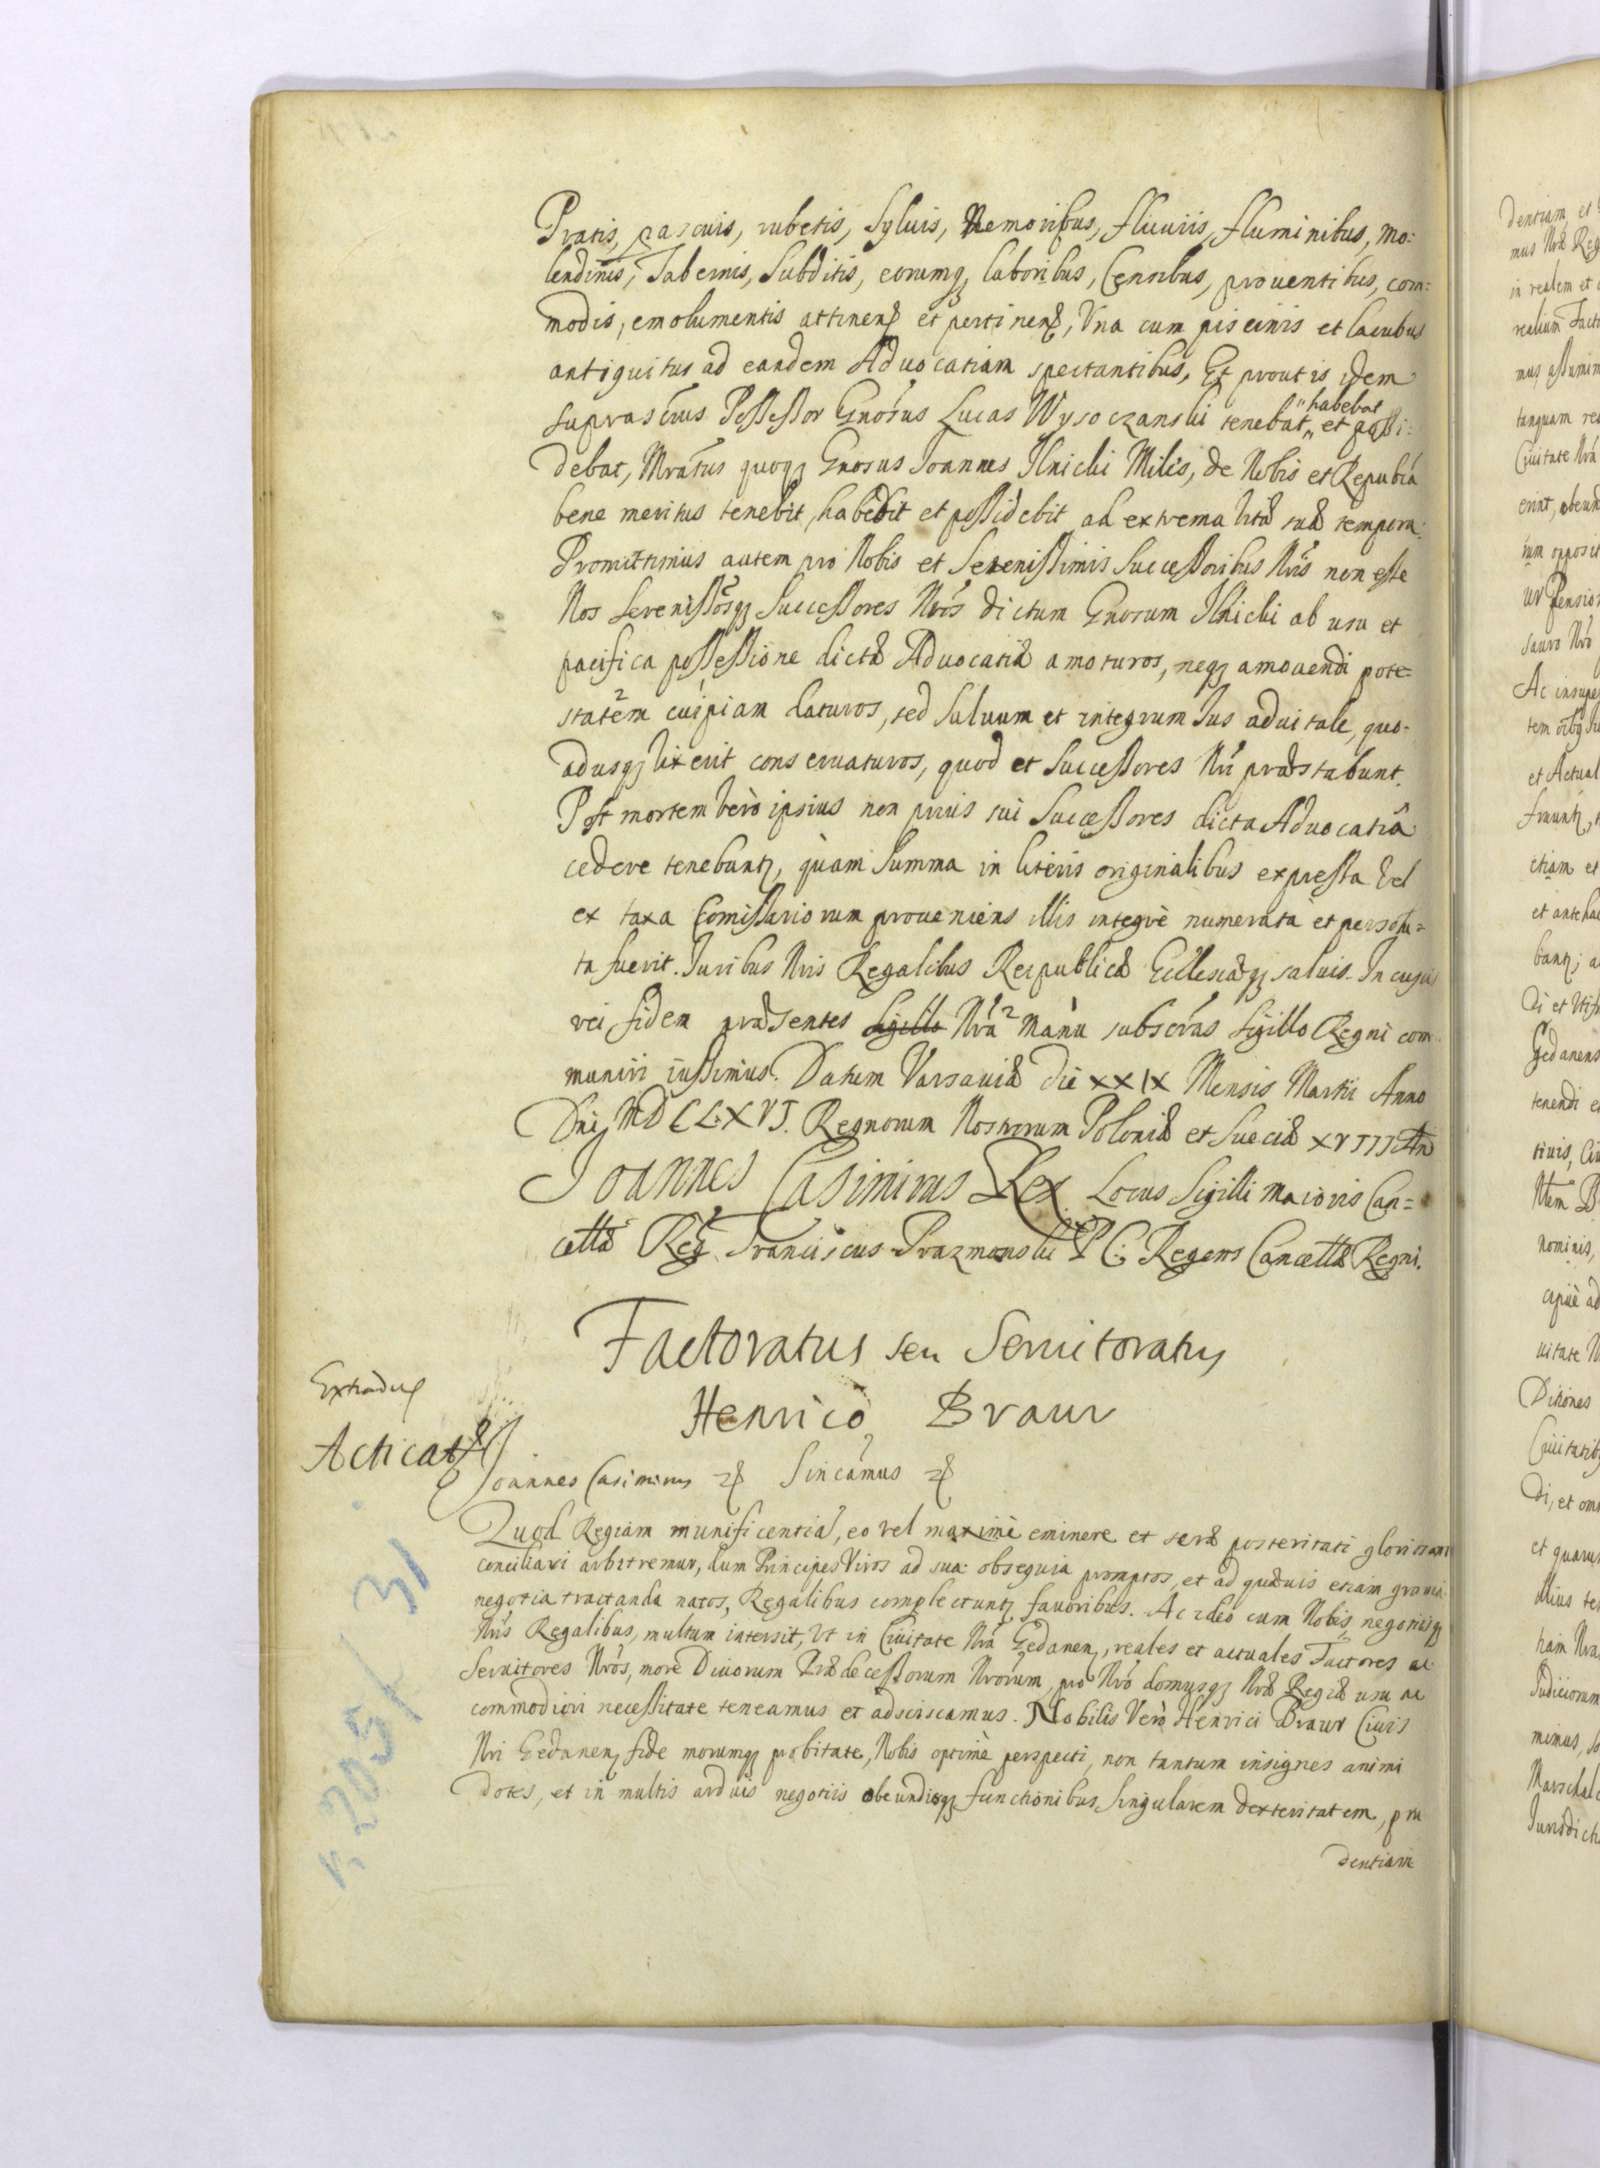 Pratis, pascuis, rubetis, Sylvis, Nemoribus, fluviis, fluminibus, mo:
lendinis, Tabernis, Subditis, eorumq; laboribus, Censibus, proventibus, com:
modis, emolumentis attinen; et pertinen;, Una cum piscinis et lacubus
antiquitus ad eandem Advocatiam spectantibus, Et prout is idem
suprascrius Possessor Gnosus Lucas Wysoczanski tenebat „habebat„ et possi:
debat, Mratus quoq; Gnosus Joannes Ilnicki Miles, de Nobis et Republca
bene meritus tenebit, habebit et possidebit ad extrema vitæ suæ tempora.
Promittimus autem pro Nobis et Serenissimis Successoribus Nris non esse
Nos Serenissosq; Successores Nros dictum Gnosum Ilnicki ab usu et
pacifica possessione dictæ Advocatiæ amoturos, neq; amovendi pote=
statem cuipiam daturos, sed Salvum et integrum Jus advitale, quo-
adusq; vixerit conservaturos, quod et Successores Nri præstabunt.
Post mortem verò ipsius non prius sui Successores dicta Advocatiâ
cedere tenebunt;, quàm Summa in literis originalibus expressa vel
ex taxa Comissariorum proveniens illis integrè numerata et persolu=
ta fuerit. Juribus Nris Regalibus Reipublicæ Ecclesiæq; salvis. In cujus
rei fidem præsentes Sigillo Nrâ Manu subscras Sigillo Regni com-
muniri iussimus. Datum Varsaviæ die XXIX Mensis Martii Anno
Dni MDCLXVI. Regnorum Nostrorum Poloniæ et Sueciæ XVIII An
Joannes Casimirus Rex Locus Sigilli Maioris Can=
cellæ Reg. Franciscus Prazmowski P C: Regens Cancellæ Regni.
Factoratus seu Servitoratus
Henrico Braur
Extradus
Acticat
Joannes Casimirus Sincamus
Quod Regiam munificentiam, eo vel maximè eminere et seræ posteritati gloriosam
conciliari arbitremur, dum Principes Viros ad sua obsequia promptos, et ad quævis etiam gravia
negotia tractanda natos, Regalibus complectunt; favoribus. Ac ideo cum Nobis, negotiisq;
Nris Regalibus, multum intersit, ut in Civitate Nra Gedanen;, reales et actuales Factores ac
Servitores Nros, more Divorum Prædecessorum Nrorum, pro Nro domusq; Nræ Regiæ usu ac
commodiori necessitate teneamus et adsciscamus. Nobilis Verò Henrici Braur Civis
Nri Gedanen; fide morumq; probitate, Nobis optimè perspecti, non tantum insignes animi
dotes, et in multis arduis negotiis obeundisq; functionibus, singularem dexteritatem, pru
dentiam
r. 2031 31
dentiam et
mus Nræ Reg
in realem et
realium Facto
mus assumim
tanquam rea
Civitate Nra
erint, obeund
ium opposit
ur Pension
sauro Nro
Ac insuper
tem
et Actual
fruunt;,
etiam et
et anteha
bant; a
di et Utif
Gedanens
tenendi e
tivis, Civ
nominis,
ad
vitate N
Ditiones
Civitatib;
di, et om
et quarum
illius te
tiam Nra
Judiciorum
minus, 
Marschalc
Jurisdict